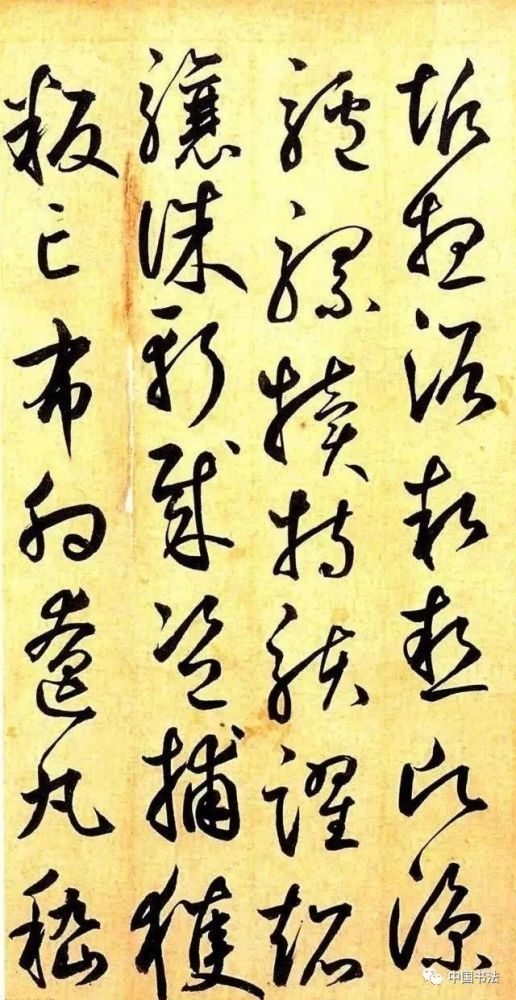 垢想浴執熱願涼
驢騾犢特駭躍超
驤誅斬賊盜捕獲
叛亡布射遼丸嵇
中国书法